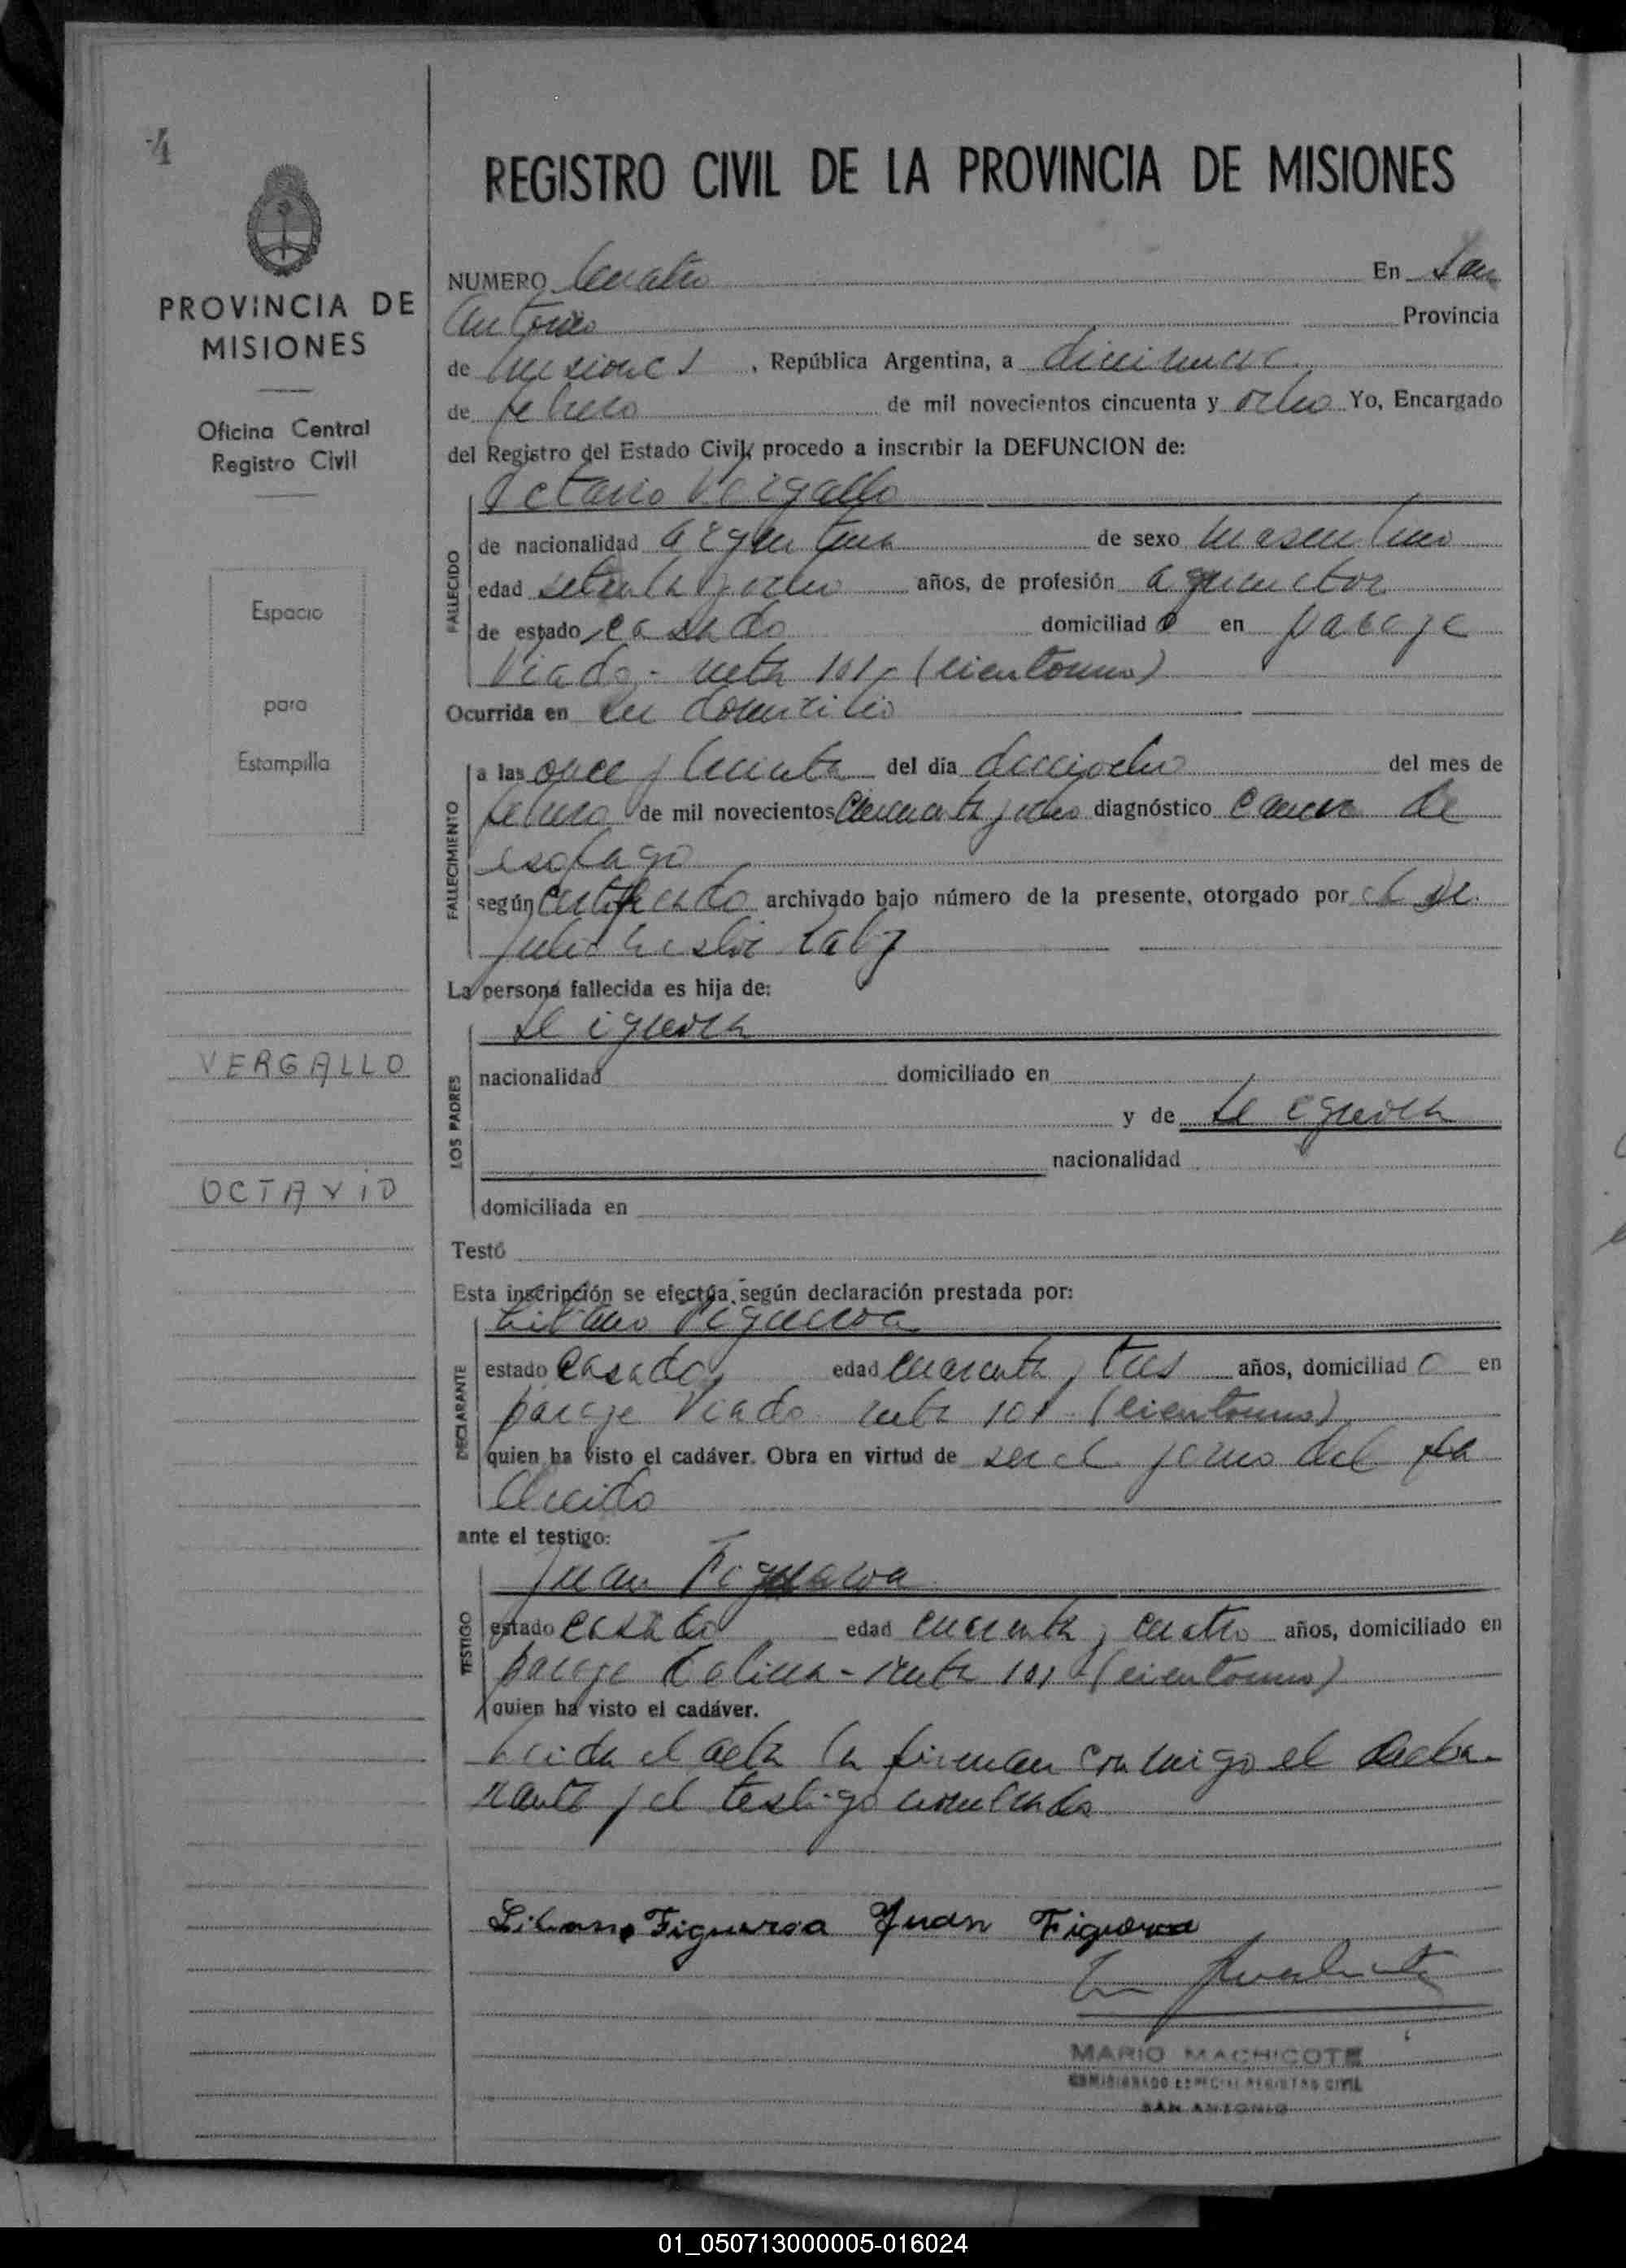 4
PROVINCIA DE
MISIONES
Oficina Central
Registro Civil
Espacio
para
Estampilla
VERGALLO
OCTAVIO
REGISTRO CIVIL DE LA PROVINCIA DE MISIONES
NUMERO Cuatro En San
Antonio Provincia
de Misiones, República Argentina, a diecinueve
de febrero de mil novecientos cincuenta y ocho Yo, Encargado
del Registro del Estado Civil, procedo a inscribir la DEFUNCION de:
Octavio Vergallo
FALLECIDO
de nacionalidad argentina de sexo masculino
edad setenta y ocho años, de profesión agricultor
de estado casado domiciliado en paraje
Viado - ruta 101 - (cientouno)
Ocurrida en su domicilio
FALLECIMIENTO
a las once y treinta del día dieciocho del mes de
febrero de mil novecientos cincuenta y ocho diagnóstico cancer de
esofago
según certificado archivado bajo número de la presente, otorgado por el Dr.
Julio
La persona fallecida es hija de:
LOS PADRES
Se ignora
nacionalidad domiciliado en
y de Se ignora
nacionalidad
domiciliada en
Testó
Esta inscripción se efectúa según declaración prestada por:
DECLARANTE
Libano Figueroa
estado casado edad cuarenta y tres años, domiciliado en
paraje Viado ruta 101 - (cientouno)
quien ha visto el cadáver. Obra en virtud de ser el yerno del fa
llecido
ante el testigo:
TESTIGO
Juan Figueroa
estado casado edad cuarenta y cuatro años, domiciliado en
paraje - ruta 101 - (cientouno)
quien ha visto el cadáver.
Leida el acta la firman conmigo el decla-
rante y el testigo nombrado
Libano Figueroa Juan Figueroa
MARIO MACHICOTE
COMISIONADO ESPECIAL REGISTRO CIVIL
SAN ANTONIO
01_050713000005-016024